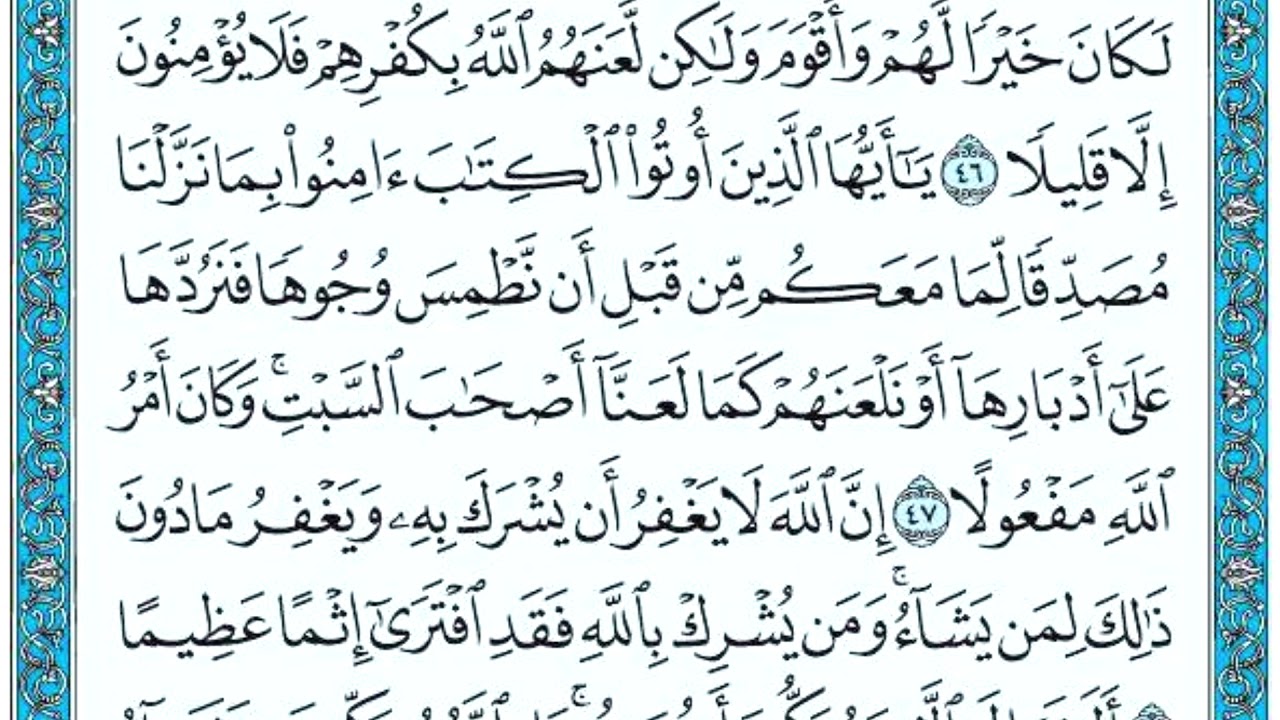 لَكَانَ خَيْرًا لَّهُمْ وَأَقْوَمَ وَلَٰكِن لَّعَنَهُمُ ٱللَّهُ بِكُفْرِهِمْ فَلَا يُؤْمِنُونَ
إِلَّا قَلِيلًا ٤٦ يَـٰٓأَيُّهَا ٱلَّذِينَ أُوتُوا۟ ٱلْكِتَـٰبَ ءَامِنُوا۟ بِمَا نَزَّلْنَا
مُصَدِّقًا لِّمَا مَعَكُم مِّن قَبْلِ أَن نَّطْمِسَ وُجُوهًا فَنَرُدَّهَا
عَلَىٰٓ أَدْبَارِهَآ أَوْ نَلْعَنَهُمْ كَمَا لَعَنَّآ أَصْحَـٰبَ ٱلسَّبْتِ ۚ وَكَانَ أَمْرُ
ٱللَّهِ مَفْعُولًا ٤٧ إِنَّ ٱللَّهَ لَا يَغْفِرُ أَن يُشْرَكَ بِهِۦ وَيَغْفِرُ مَا دُونَ
ذَٰلِكَ لِمَن يَشَآءُ ۚ وَمَن يُشْرِكْ بِٱللَّهِ فَقَدِ ٱفْتَرَىٰٓ إِثْمًا عَظِيمًا